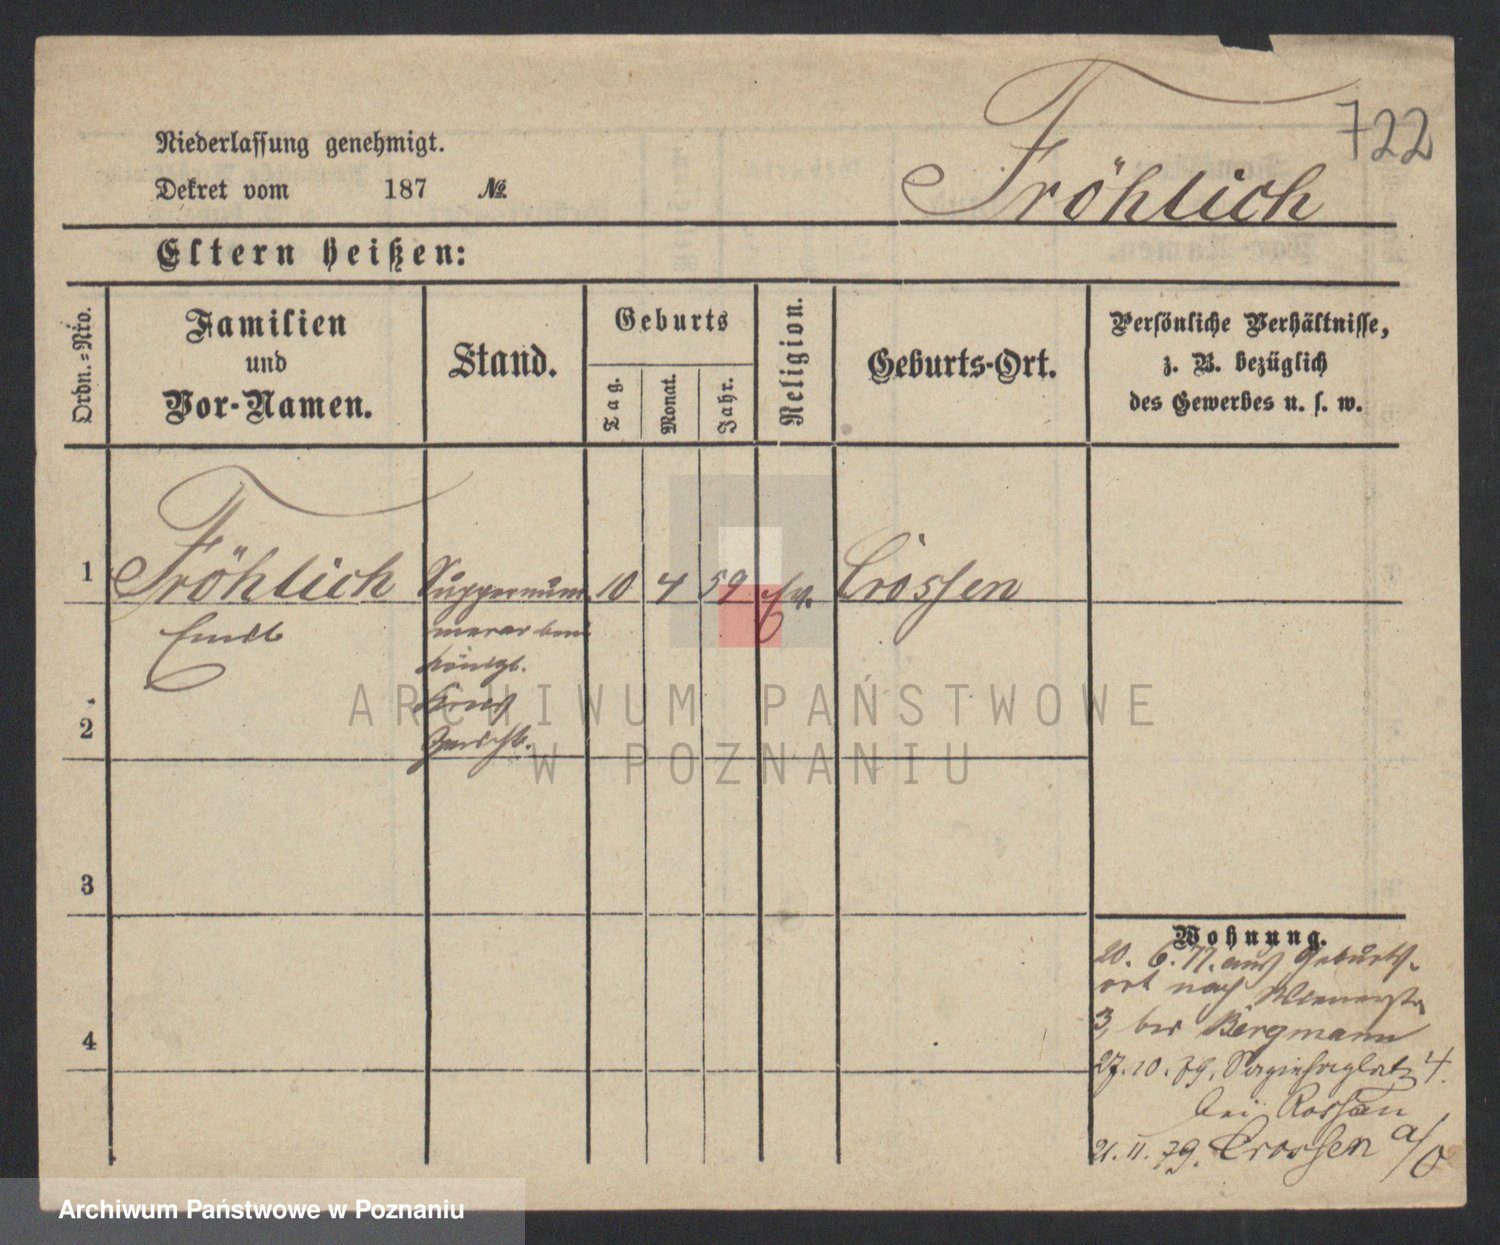 722
Niederlassung genehmigt.
Dekret vom 187 №
Fröhlich
Eltern heißen:
Ordn.=Nro.
Familien
und
Vor-Namen.
Stand.
Geburts
Tag.
Monat.
Jahr.
Religion.
Geburts-Ort.
Persönliche Verhältnisse,
z. B. bezüglich
des Gewerbes u. s. w.
1 Fröhlich 10 4 59 Ev. Crossen
Emil
königl.
Kreis
Gericht.
2
3
4
Wohnung.
20. 6. 77. aus Geburts-
ort nach
3, bei Bergmann
27. 10. 79, Sapiehaplatz 4.
bei
21. 11. 79. Crossen a/O
ARCHIWUM PAŃSTWOWE
W POZNANIU
Archiwum Państwowe w Poznaniu